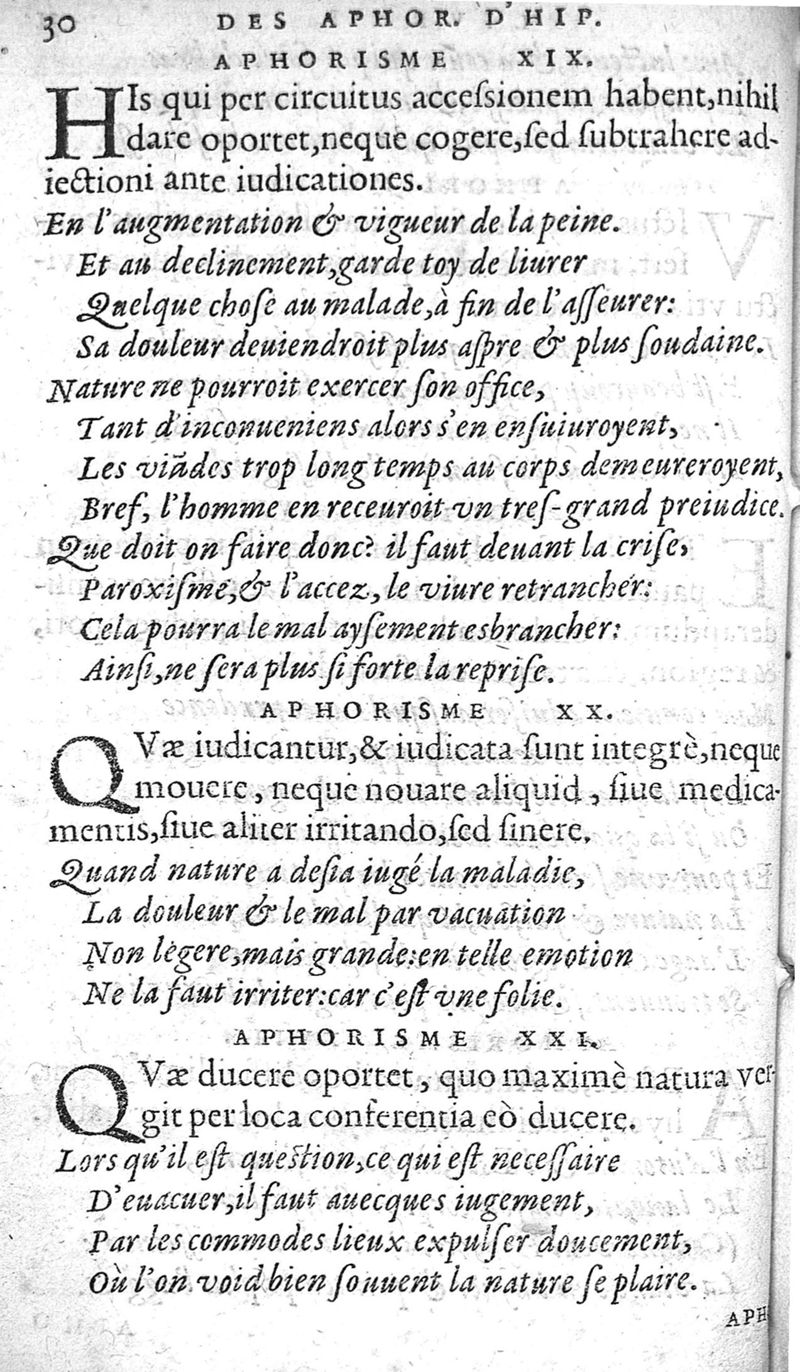 30 DES APHOR. D'HIP.
APHORISME XIX.
HIs qui per circuitus accessionem habent, nihil
dare oportet, neque cogere, sed subtrahere ad-
iectioni ante iudicationes.
En l'augmentation & vigueur de la peine.
Et au declinement, garde toy de liurer
Quelque chose au malade, à fin de l'asseurer:
Sa douleur deuiendroit plus aspre & plus soudaine.
Nature ne pourroit exercer son office,
Tant d'inconueniens alors s'en ensuiuroyent,
Les viādes trop long temps au corps demeureroyent,
Bref, l'homme en receuroit vn tres-grand preiudice.
Que doit on faire donc? il faut deuant la crise,
Paroxisme, & l'accez, le viure retrancher:
Cela pourra le mal aysement esbrancher:
Ainsi, ne sera plus si forte la reprise.
APHORISME XX.
QVæ iudicantur, & iudicata sunt integrè, neque
mouere, neque nouare aliquid, siue medica-
mentis, siue aliter irritando, sed sinere.
Quand nature a desia iugé la maladie,
La douleur & le mal par vacuation
Non lègere, mais grande: en telle emotion
Ne la faut irriter: car c'est vne folie.
APHORISME XXI.
QVæ ducere oportet, quo maximè natura ver-
git per loca conferentia eò ducere.
Lors qu'il est question, ce qui est necessaire
D'euacuer, il faut auecques iugement,
Par les commodes lieux expulser doucement,
Où l'on void bien souuent la nature se plaire.
APH